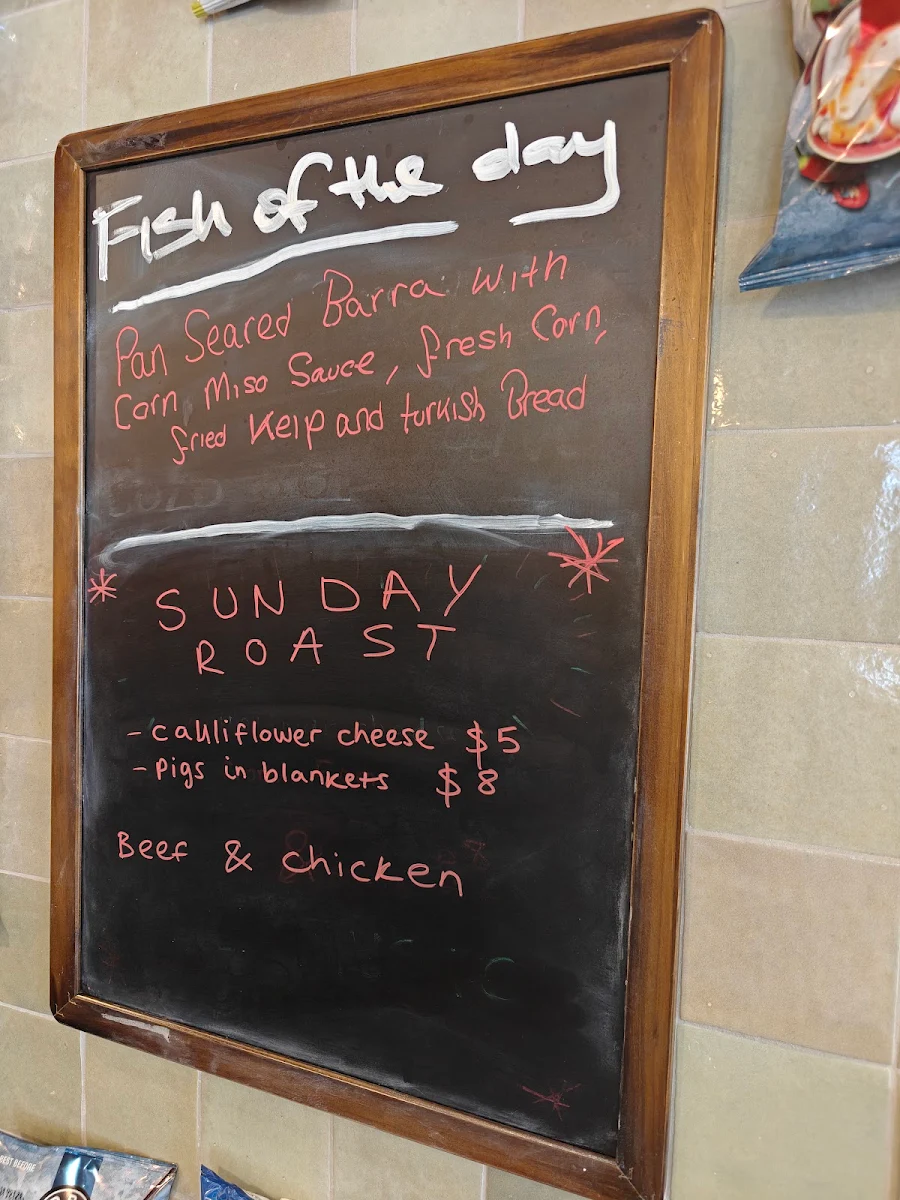 Fish of the day
Pan Seared Barra with
Corn Miso Sauce, fresh Corn,
fried Kelp and turkish Bread
* SUNDAY *
ROAST
- cauliflower cheese $5
- pigs in blankets $8
Beef & chicken